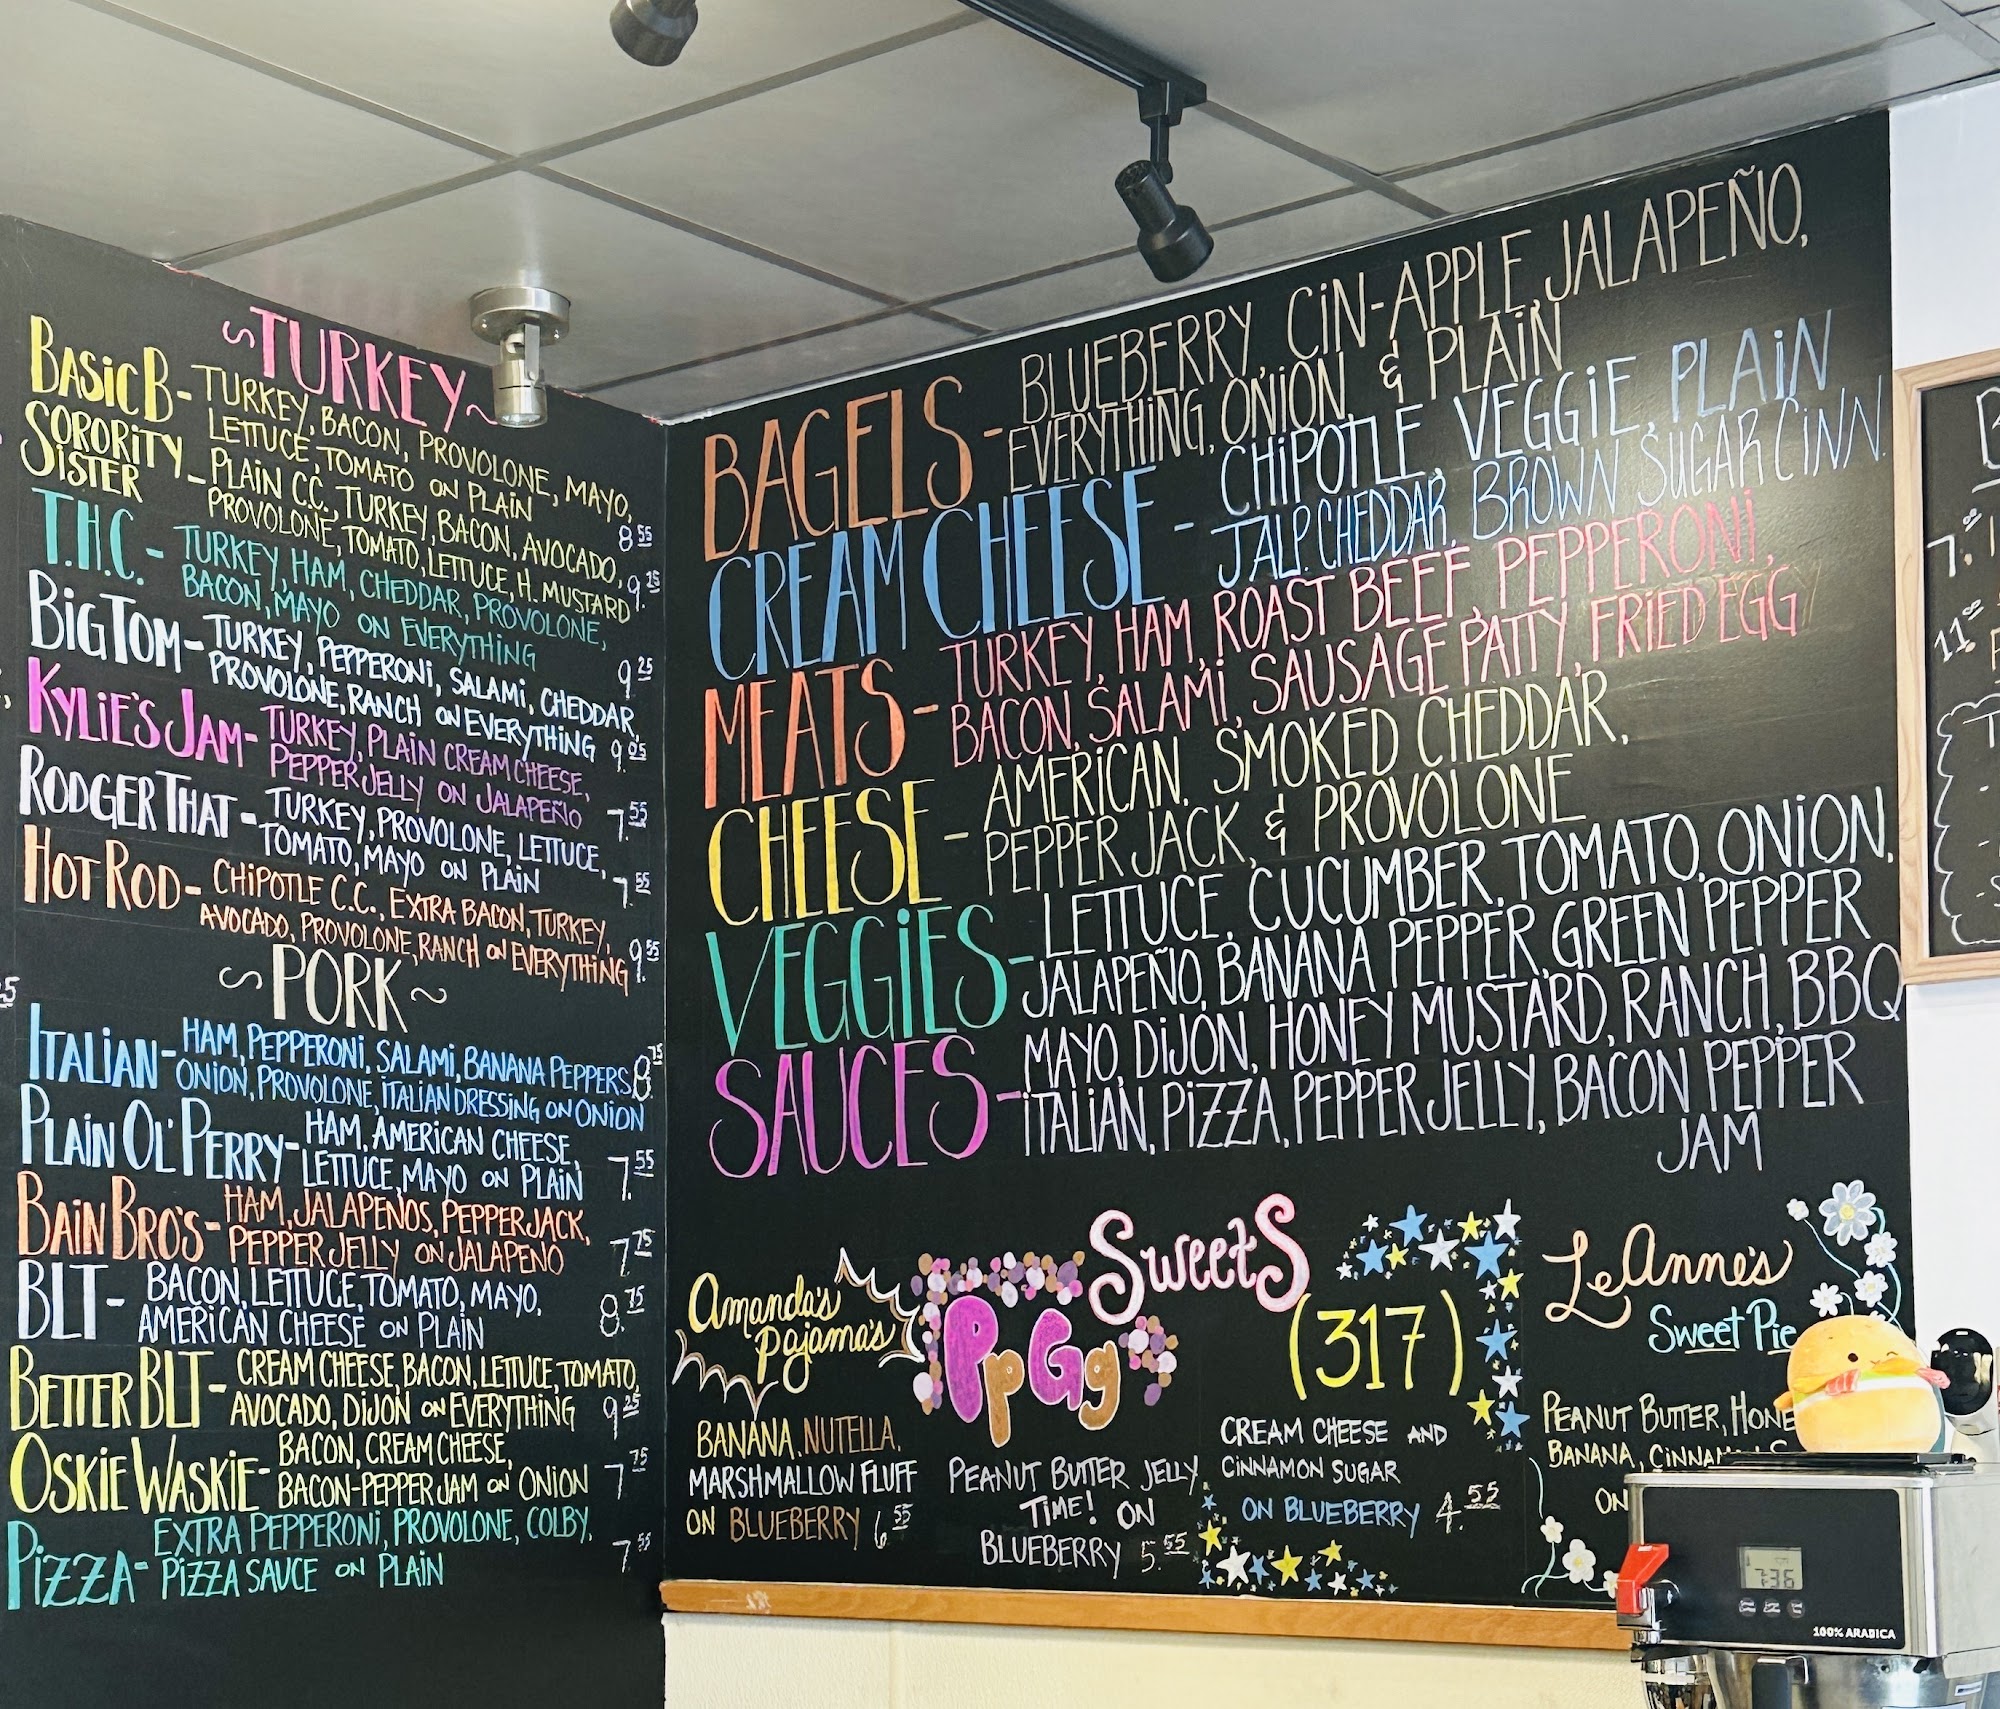 ~TURKEY~
BASIC B - TURKEY, BACON, PROVOLONE, MAYO,
LETTUCE, TOMATO ON PLAIN 8.55
SORORITY SISTER - PLAIN C.C., TURKEY, BACON, AVOCADO,
PROVOLONE, TOMATO, LETTUCE, H. MUSTARD 9.25
T.H.C. - TURKEY, HAM, CHEDDAR, PROVOLONE,
BACON, MAYO ON EVERYTHING 9.25
BIG TOM - TURKEY, PEPPERONI, SALAMI, CHEDDAR,
PROVOLONE, RANCH ON EVERYTHING 9.05
KYLIE'S JAM - TURKEY, PLAIN CREAM CHEESE,
PEPPER JELLY ON JALAPEÑO 7.55
RODGER THAT - TURKEY, PROVOLONE, LETTUCE,
TOMATO, MAYO ON PLAIN 7.55
HOT ROD - CHIPOTLE C.C., EXTRA BACON, TURKEY,
AVOCADO, PROVOLONE, RANCH ON EVERYTHING 9.55
~PORK~
ITALIAN - HAM, PEPPERONI, SALAMI, BANANA PEPPERS, 8.75
ONION, PROVOLONE, ITALIAN DRESSING ON ONION
PLAIN OL' PERRY - HAM, AMERICAN CHEESE,
LETTUCE, MAYO ON PLAIN 7.55
BAIN BRO'S - HAM, JALAPEÑOS, PEPPER JACK,
PEPPER JELLY ON JALAPENO 7.75
BLT - BACON, LETTUCE, TOMATO, MAYO,
AMERICAN CHEESE ON PLAIN 8.75
BETTER BLT - CREAM CHEESE, BACON, LETTUCE, TOMATO,
AVOCADO, DIJON ON EVERYTHING 9.25
OSKIE WASKIE - BACON, CREAM CHEESE,
BACON-PEPPER JAM ON ONION 7.75
PIZZA - EXTRA PEPPERONI, PROVOLONE, COLBY,
PIZZA SAUCE ON PLAIN 7.55
BAGELS - BLUEBERRY, CIN-APPLE, JALAPEÑO,
EVERYTHING, ONION, & PLAIN
CREAM CHEESE - CHIPOTLE, VEGGIE, PLAIN
JALP. CHEDDAR, BROWN SUGAR CINN.
MEATS - TURKEY, HAM, ROAST BEEF, PEPPERONI,
BACON, SALAMI, SAUSAGE PATTY, FRIED EGG
CHEESE - AMERICAN, SMOKED CHEDDAR,
PEPPER JACK, & PROVOLONE
VEGGIES - LETTUCE, CUCUMBER, TOMATO, ONION,
JALAPEÑO, BANANA PEPPER, GREEN PEPPER
SAUCES - MAYO, DIJON, HONEY MUSTARD, RANCH, BBQ
ITALIAN, PIZZA, PEPPER JELLY, BACON PEPPER
JAM
SWEETS
Amanda's
Pajama's
BANANA, NUTELLA,
MARSHMALLOW FLUFF
ON BLUEBERRY 6.55
PpGg
PEANUT BUTTER JELLY
TIME! ON
BLUEBERRY 5.55
(317)
CREAM CHEESE AND
CINNAMON SUGAR
ON BLUEBERRY 4.55
LeAnne's
Sweet Pie
PEANUT BUTTER, HONE
BANANA,
ON
7.00
11.00
7:36
100% ARABICA